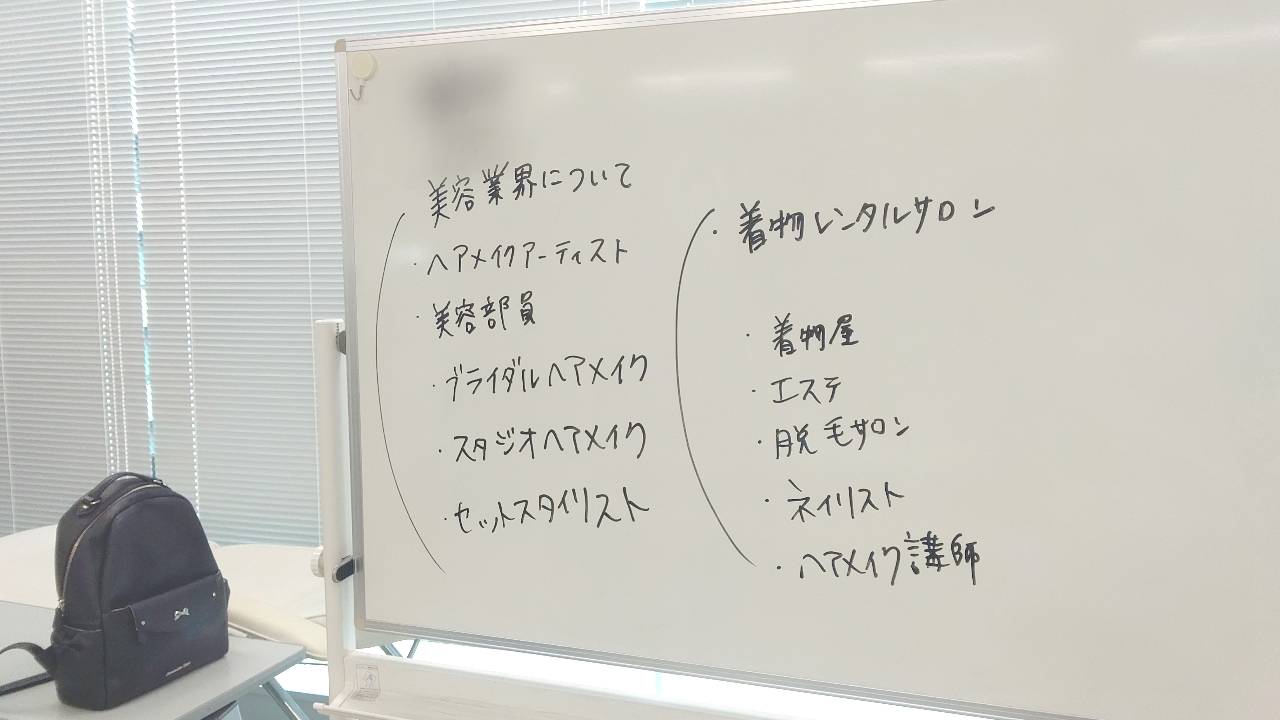 美容業界について
・ヘアメイクアーティスト
・美容部員
・ブライダルヘアメイク
・スタジオヘアメイク
・セットスタイリスト
・着物レンタルサロン
・着物屋
・エステ
・脱毛サロン
・ネイリスト
・ヘアメイク講師